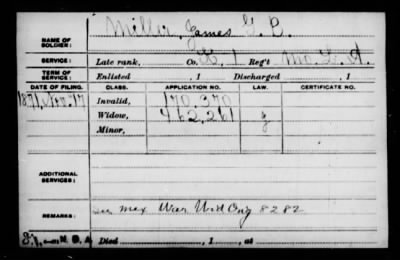 NAME OF SOLDIER: Miller, James G. B.
SERVICE: Late rank, Co. K, 1 Reg't Mo. L. A.
TERM OF SERVICE: Enlisted , 1 Discharged , 1
DATE OF FILING. CLASS. APPLICATION NO. LAW. CERTIFICATE NO.
1871, Nov. 17 Invalid, 170.370
Widow, 462.261 g
Minor,
ADDITIONAL SERVICES:
REMARKS: See Mex War Wid Orig 8282
Died , 1 , at